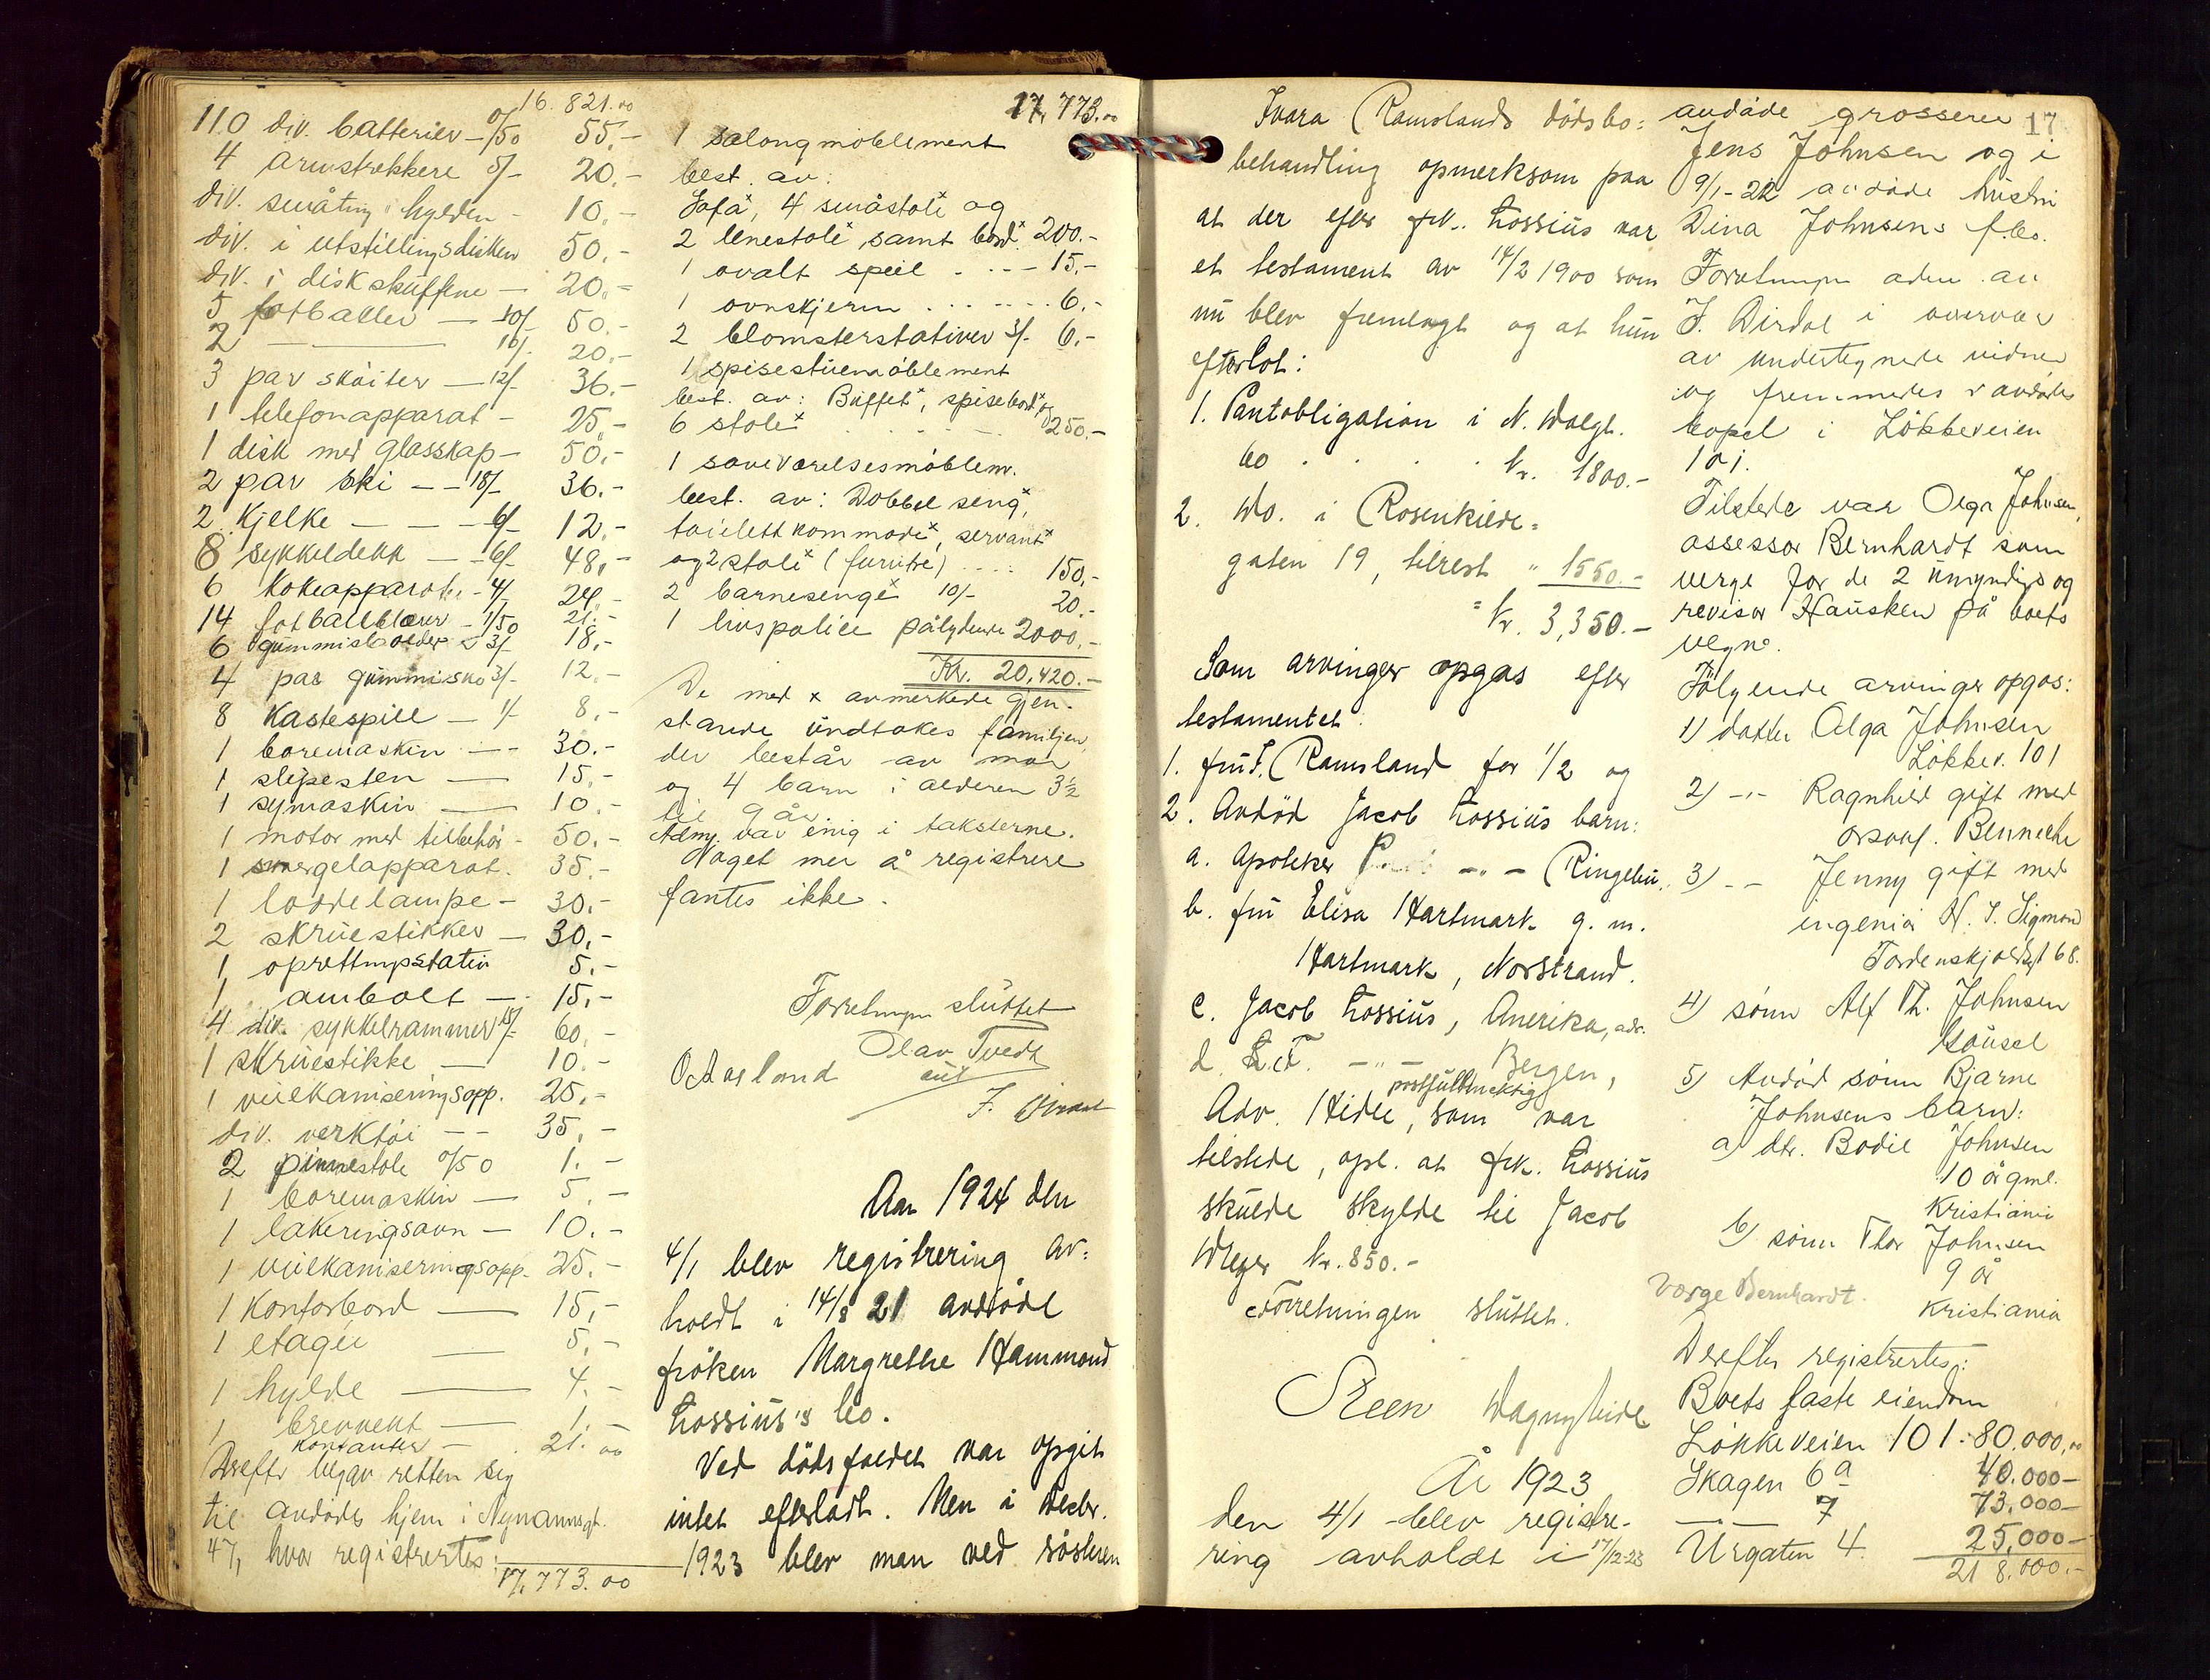 16.821.00
110 div. batterier - 0/50 55.-
4 armstrekkere 5/- 20.-
div. småting i hylden - 10.-
div. i utstillingsdisken 50.-
div. i diskskuffene - 20.-
5 fotballer - 10/- 50.-
2 - 10/- 20.-
3 par skøiter - 12/- 36.-
1 telefonapparat - 25.-
1 disk med glasskap - 50.-
2 par ski - - 18/- 36.-
2 kjelke - - - 6/- 12.-
8 sykkeldekk - - 6/- 48.-
6 kokeapparater - 4/- 24.-
14 fotballblærer - 1/50 21.-
6 gummisbolder a 3/- 18.-
4 par gummisko 3/- 12.-
8 Kastespill - 1/- 8.-
1 boremaskin - - 30.-
1 slipesten - 15.-
1 symaskin - 10.-
1 motor med tilbehør - 50.-
1 smergelapparat. 35.-
1 loddelampe - 30.-
2 skruestikker - 30.-
1 oprettingsstativ 5.-
1 ambolt - 15.-
4 div. sykkelrammer 15/- 60.-
1 skruestikke - 10.-
1 vulkaniseringsopp. 25.-
div. verktøi - - 35.-
2 pinnestole 0/50 1.-
1 boremaskin - 5.-
1 lakeringsovn - 10.-
1 vulkaniseringsopp. 25.-
1 Kontorbord - 15.-
1 etagér - 5.-
1 hylde - 4.-
1 brevvekt - 1.-
kontanter - 21.00
Derefter begav retten sig
til avdødes hjem i Nymannsgt.
47, hvor registrertes:
17.773.00
17.773.00
1 salongmøblement
best. av:
Sofa x, 4 småstole x og
2 lenestole x, samt bord x 200.-
1 ovalt speil . . - - 15.-
1 ovnskjerm . . . . . . 6.-
2 blomsterstativer 3/- 6.-
1 spisestuemøblement
best. av: Buffet x, spisebord x og
6 stole x . . . . 250.-
1 soveværelsesmøblem.
best. av: Dobbel seng x,
toilettkommode x, servant x
og 2 stole x (furutre) . . . . 150.-
2 barnesenge x 10/- 20.-
1 livspolice pålydende 2000.-
Kr. 20,420.-
De med x avmerkede gjen-
stande undtokes familjen,
der består av mor
og 4 barn i alderen 3 ½
til 9 år.
Adm. var enig i taksterne.
Noget mer å registrere
fantes ikke.
Forretningen sluttet
Olav Tvedt
O Aasland
Aar 1924 den
4/1 blev registrering av-
holdt i 14/8 21 avdøde
frøken Margrethe Hammond
Lossius's bo.
Ved dødsfaldet var opgit
intet efterladt. Men i decbr.
1923 blev man ved søsteren
Ivara Ramslands dødsbo-
behandling opmerksom paa
at der efter frk. Lossius var
et testament av 14/2 1900 som
nu blev fremlagt og at hun
efterlot:
1. Pantobligation i N. Dalgt.
60 . . . . kr. 1800.-
2. Do. i Rosenkilde-
gaten 19, tilrest " 1550.-
= kr. 3,350.-
Som arvinger opgas efter
testamentet:
1. fru F. Ramsland for 1/2 og
2. Avdød Jacob Lossius barn:
a. Apoteker -"- Ringebu.
b. fru Elisa Hartmark g. m.
Hartmark, Norstrand.
c. Jacob Lossius, Amerika, adr.
d. L. F. -"- Bergen,
postfullmektig
Adv. Hidle, som var
tilstede, opl. at frk. Lossius
skulde skylde til Jacob
Meyer kr. 850.-
Forretningen sluttet.
Steen Dagny Eide
År 1923
den 4/1 blev registre-
ring avholdt i 17/12-23
17
avdøde grosserer
Jens Johnsen og i
9/1-22 avdøde hustru
Dina Johnsens f.bo.
Forretningen adm. av
F. Dirdal i overvær
av undertegnede vidner
og fremmedes i avdødes
bopel i Løkkeveien
101.
Tilstede var Olga Johnsen,
assessor Bernhardt som
verge for de 2 umyndige og
revisor Hausken på boets
vegne.
Følgende arvinger opgas:
1) datter Olga Johnsen
Løkkev. 101
2) -"- Ragnhild gift med
Benneche
3) -"- Jenny gift med
ingeniør N. S. Sigmond
Tordenskjoldsgt 68.
4) sønn Alf Th. Johnsen
Gausel
5) Avdød sønn Bjarne
Johnsens barn:
a) dtr. Bodil Johnsen
10 år gml.
Kristiania
b) sønn Thor Johnsen
9 år
Vorge Bernhardt.
Kristiania
Derefter registrertes:
Boets faste eiendom
Løkkeveien 101 - 80.000,00
Skagen 6a 40.000-
- " - 7 73.000-
Ürgaten 4. 25.000-
218.000.-